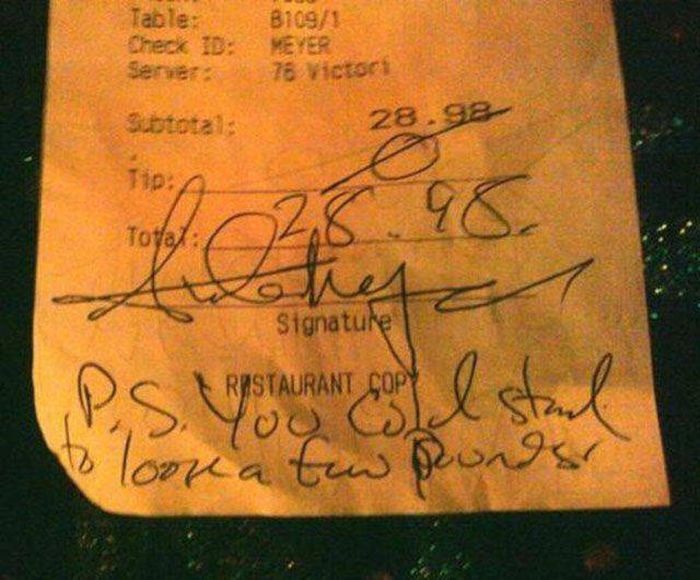 Table: B109/1
Check ID: MEYER
Server: 76 Victori
Subtotal: 28.98
Tip: 0
Total: 28.98.
Signature
RESTAURANT COPY
P.S. You cold stand
to loose a few pounds